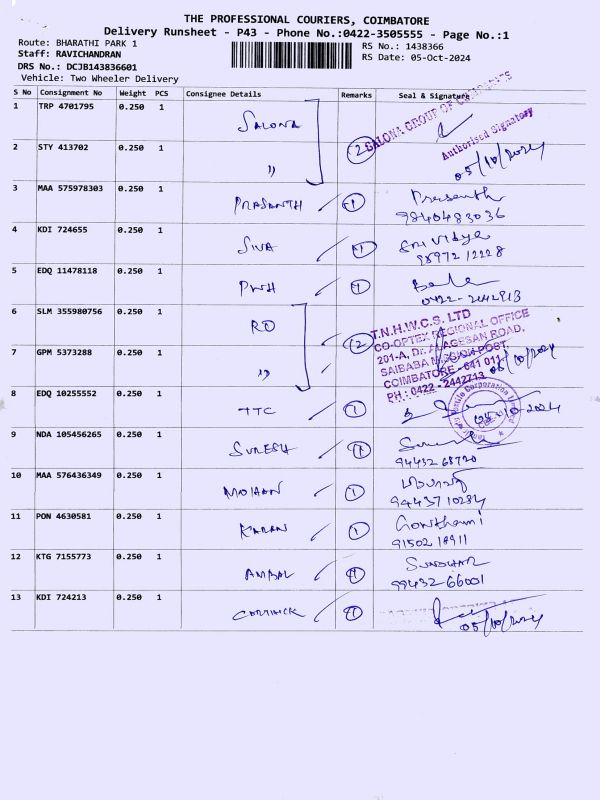 THE PROFESSIONAL COURIERS, COIMBATORE
Delivery Runsheet - P43 - Phone No.:0422-3505555 - Page No.:1
Route: BHARATHI PARK 1
RS No.: 1438366
Staff: RAVICHANDRAN
RS Date: 05-Oct-2024
DRS No.: DCJB143836601
Vehicle: Two Wheeler Delivery
S No Consignment No Weight PCS Consignee Details Remarks Seal & Signature
1 TRP 4701795 0.250 1 SALONA
SALONA GROUP OF
Authorised Signatory
2 STY 413702 0.250 1 " 2 05/10/2024
3 MAA 575978303 0.250 1 PRASANTH 1 Prasanth
9840483036
4 KDI 724655 0.250 1 SIVA 1 Sri Vidya
98972 12228
5 EDQ 11478118 0.250 1 1
6 SLM 355980756 0.250 1 RO 2
T.N.H.W.C.S. LTD
CO-OPTEX REGIONAL OFFICE
201-A, Dr. ALAGESAN ROAD,
SAIBABA MISSION POST,
COIMBATORE - 641 011
PH : 0422 - 2442713
7 GPM 5373288 0.250 1 " 05/10/2024
8 EDQ 10255552 0.250 1 TTC 1 05-10-2024
9 NDA 105456265 0.250 1 SURESH 1
94432 68720
10 MAA 576436349 0.250 1 MOHAN 1
94437 10284
11 PON 4630581 0.250 1 KARAN 1 Gowthami
91502 18911
12 KTG 7155773 0.250 1 AMBAL 1 SUNDHAR
99432-66001
13 KDI 724213 0.250 1 1 05/10/2024